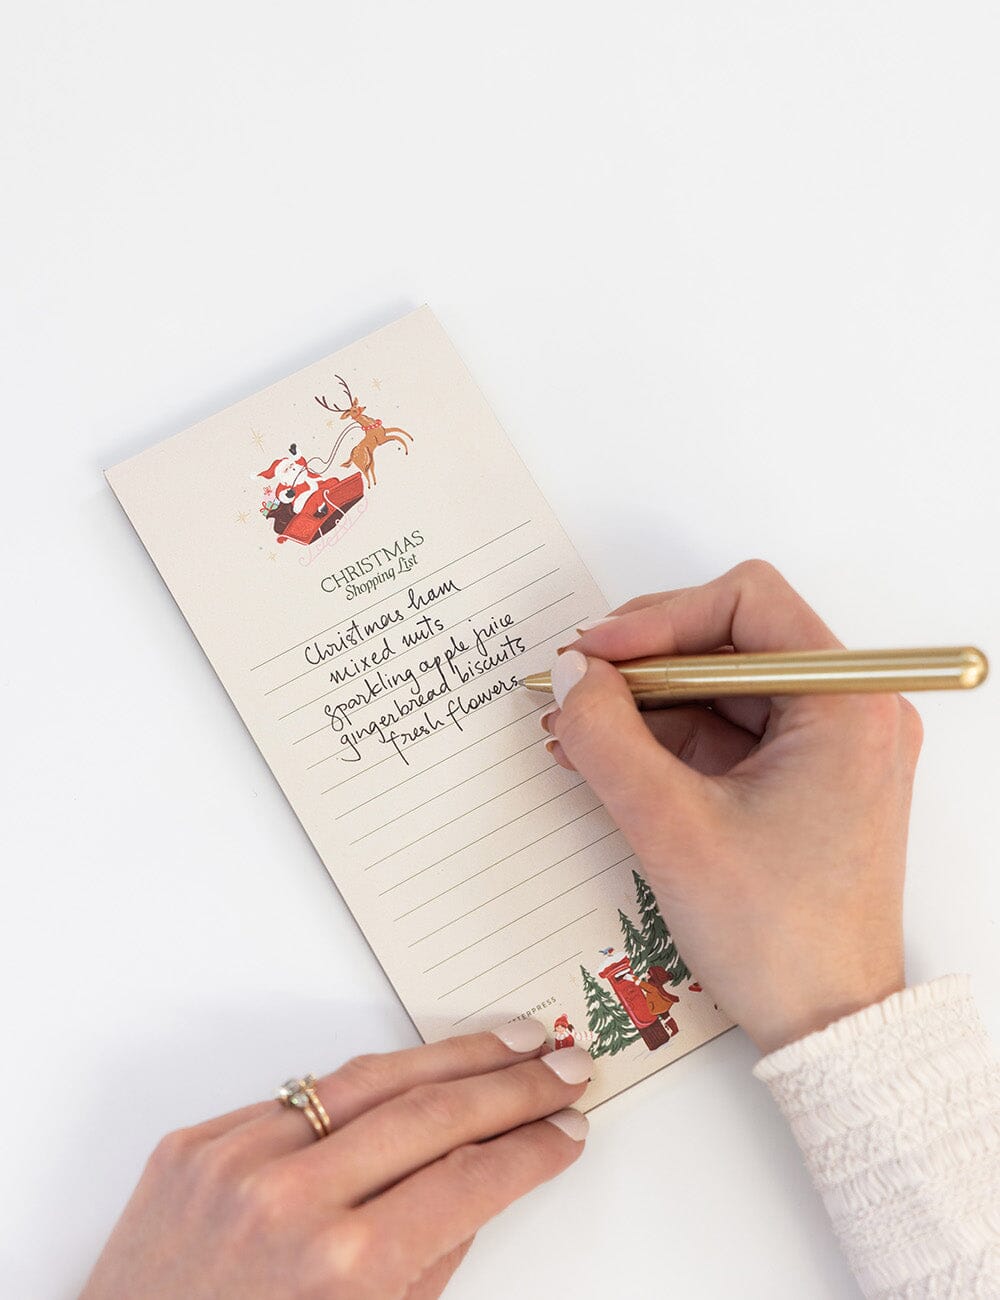 CHRISTMAS
Shopping List
Christmas ham
mixed nuts
sparkling apple juice
gingerbread biscuits
fresh flowers